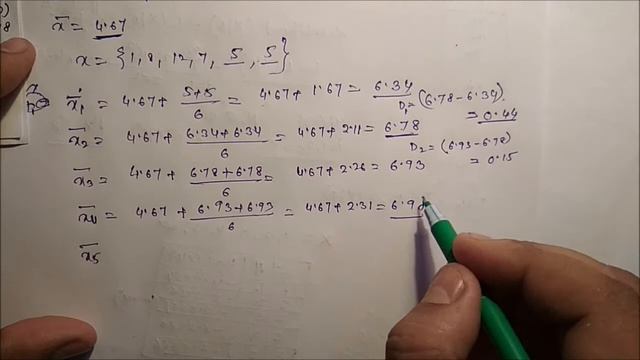 x̄ = 4.67
x = {1, 8, 12, 7, 5, 5}
x̄₁ = 4.67 + 5+5/6 = 4.67 + 1.67 = 6.34
D₁ = (6.78 - 6.34)
= 0.44
x̄₂ = 4.67 + 6.34+6.34/6 = 4.67 + 2.11 = 6.78
D₂ = (6.93 - 6.78)
= 0.15
x̄₃ = 4.67 + 6.78+6.78/6 = 4.67 + 2.26 = 6.93
x̄₄ = 4.67 + 6.93+6.93/6 = 4.67 + 2.31 = 6.9
x̄₅